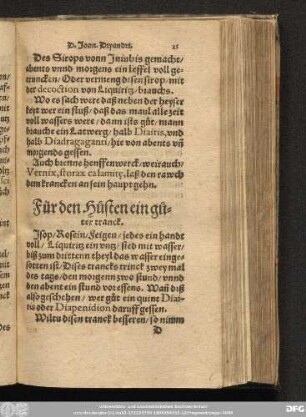 D. Joan. Dryandri. 25
Des Sirops vonn Iniubis gemacht/
abents vnnd morgens ein leffel voll ge-
truncken/ Oder vermeng disen sirop mit
der decoction von Liquiritz/ brauchs.
Wo es sach were daß neben der heyser
keyt wer ein fluß/ daß das maul alle zeit
voll wassers were/ dann ists gůt/ mann
brauche ein Latwerg/ halb Diairis, vnd
halb Diadragaganti/ hie von abents vñ
morgends gessen.
Auch brenne henffenwerck/ weirauch/
Vernix, storax calamity, laß den rawch
dem krancken an sein haupt gehn.
Für den Hůsten ein gů-
ter tranck.
Isop/ Rosein/ Feigen/ jedes ein handt
voll/ Liquiritz ein vntz/ sied mit wasser/
biß zum drittenn theyl das wasser einge-
sotten ist/ Dises trancks trinck zwey mal
des tags/ den morgenn zwo stund/ vnnd
den abent ein stund vor essens. Wañ diß
also geschehen/ wer gůt ein quint Diai-
ris oder Diapenidion daruff gessen.
Wiltu disen tranck besseren/ so nimm
D